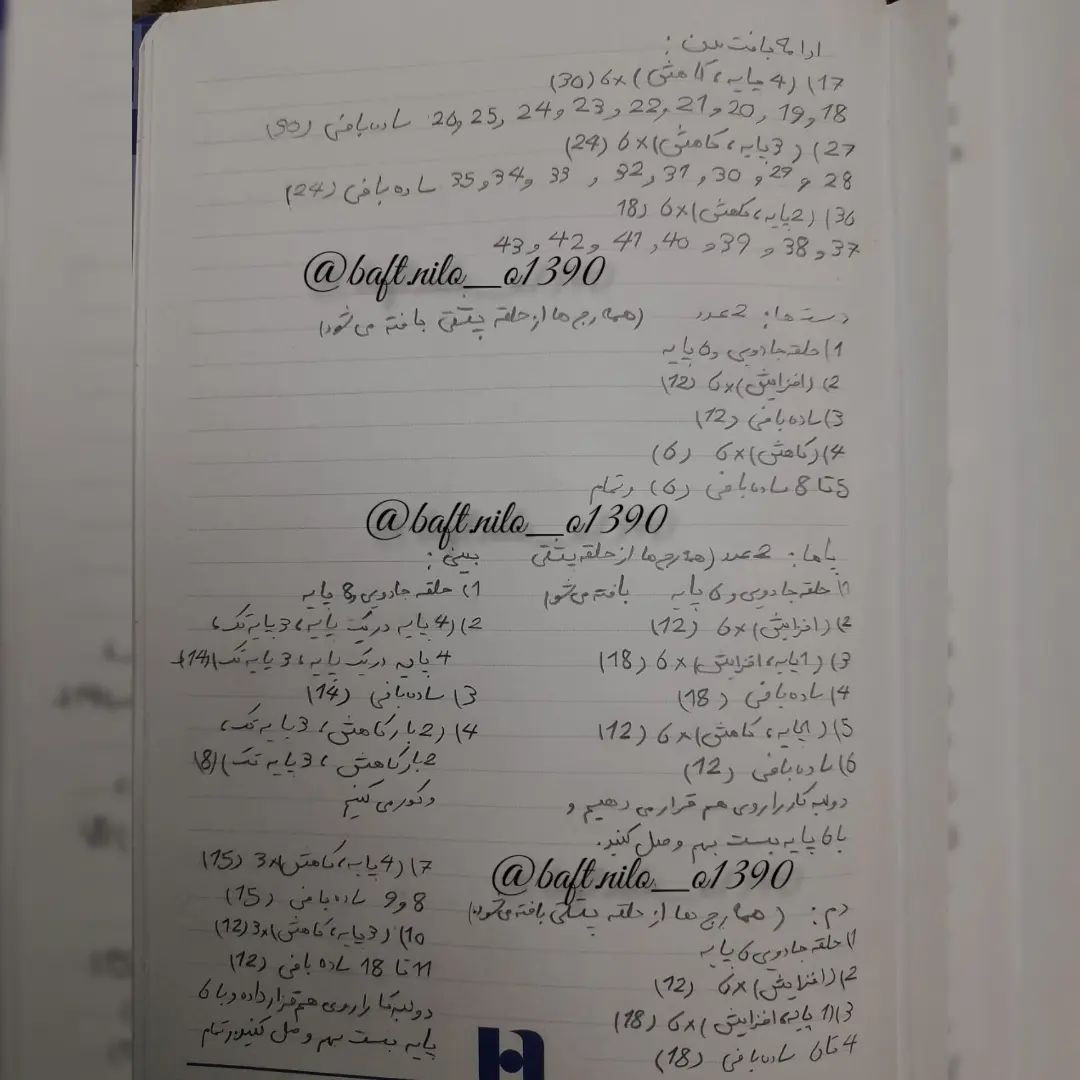 ادامه بافت بدن :
17) (4 پایه، کاهش) ×6 (30)
18و 19و 20و 21و 22و 23و 24و 25و 26 ساده بافی (30)
27) (3 پایه، کاهش)×6 (24)
28 و 29و 30 و 31 و 32 و 33 و 34و 35 ساده بافی (24)
36) (2 پایه، کاهش)×6 (18
37 و 38 و 39 و 40 و 41 و 42 و 43
@baft.nilo__o1390
دست ها: 2 عدد (همه رج ها از حلقه پشتی بافته می شود)
1) حلقه جادویی و 6 پایه
2) (افزایش)×6 (12)
3) ساده بافی (12)
4) (کاهش)×6 (6)
5 تا 8 ساده بافی (6) و تمام
@baft.nilo__o1390
پاها: 2 عدد (همه رج ها از حلقه پشتی بافته می شود)
1) حلقه جادویی و 6 پایه
2) (افزایش)×6 (12)
3) (1 پایه، افزایش)×6 (18)
4) ساده بافی (18)
5) (1 پایه، کاهش)×6 (12)
6) ساده بافی (12)
دولبه کار را روی هم قرار می دهیم و
با 6 پایه بست بهم وصل کنید.
بینی :
1) حلقه جادویی و 8 پایه
2) (4 پایه در یک پایه، 3 پایه تک،
4 پایه در یک پایه، 3 پایه تک) (14)
3) ساده بافی (14)
4) (2 بار کاهش، 3 پایه تک،
2 بار کاهش، 3 پایه تک) (8)
و کور می کنیم
@baft.nilo__o1390
دم : (همه رج ها از حلقه پشتی بافته می شود)
1) حلقه جادویی 6 پایه
2) (افزایش)×6 (12)
3) (1 پایه، افزایش)×6 (18)
4 تا 6 ساده بافی (18)
7) (4 پایه، کاهش)×3 (15)
8 و 9 ساده بافی (15)
10) (3 پایه، کاهش)×3 (12)
11 تا 18 ساده بافی (12)
دولبه کار را روی هم قرار داده و با 6
پایه بست بهم وصل کنید. و تمام